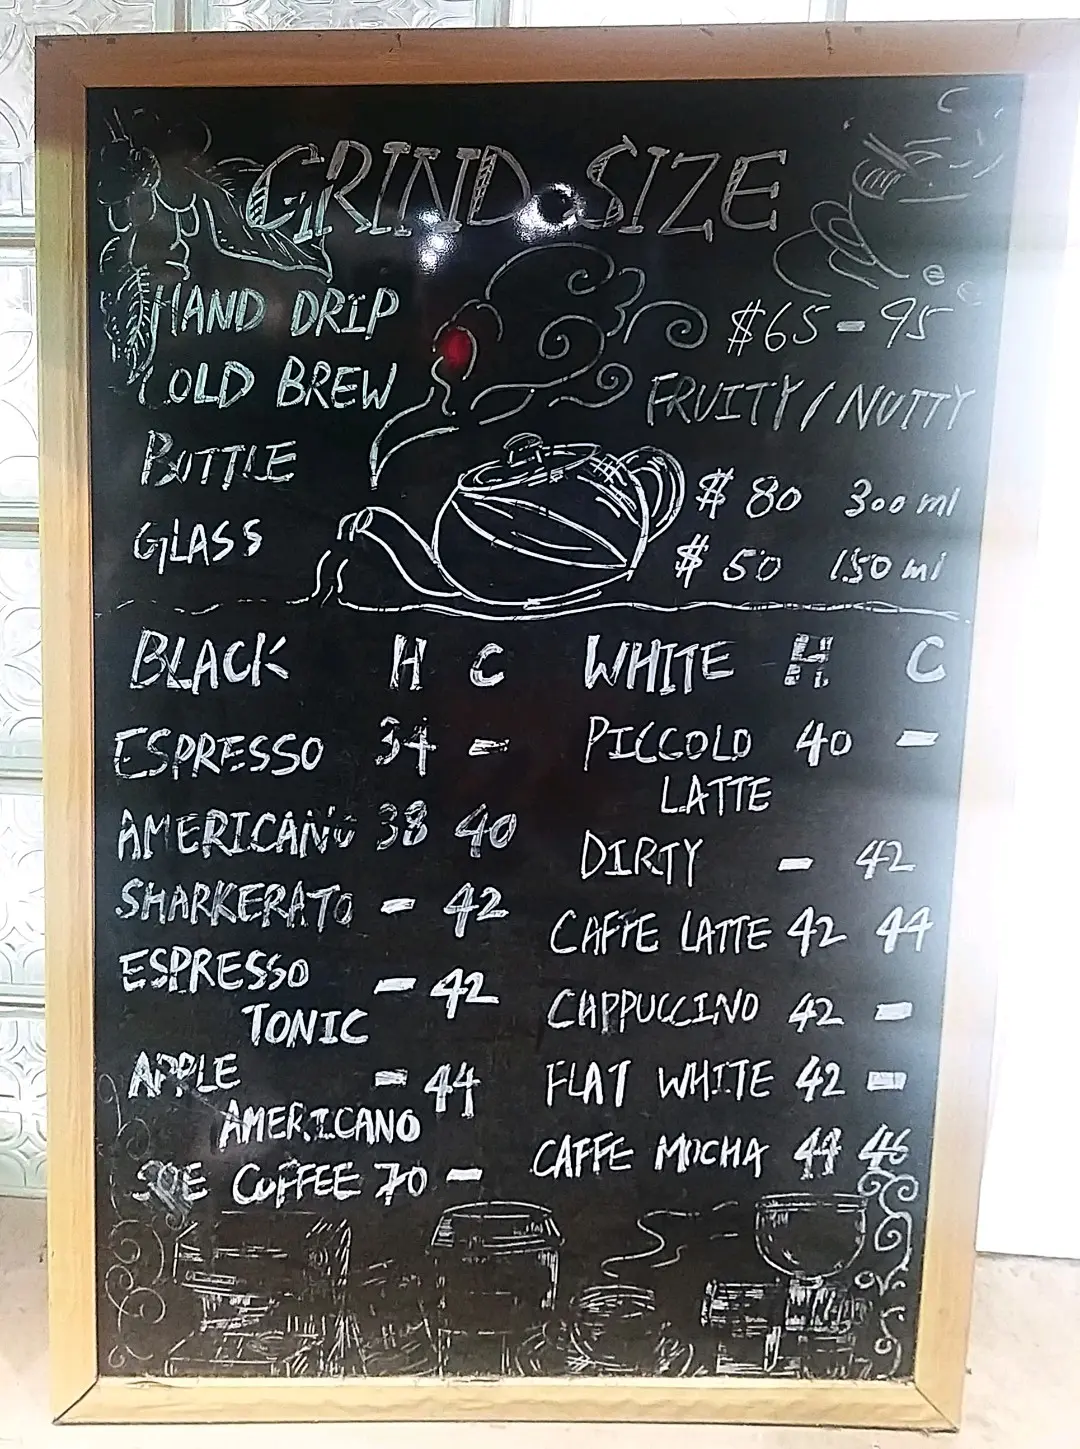 GRIND SIZE
HAND DRIP $65 - 95
COLD BREW FRUITY / NUTTY
BOTTLE $ 80 300 ml
GLASS $ 50 150 ml
BLACK H C
ESPRESSO 34 -
AMERICANO 38 40
SHARKERATO - 42
ESPRESSO - 42
TONIC
APPLE - 44
AMERICANO
SOE COFFEE 70 -
WHITE H C
PICCOLO 40 -
LATTE
DIRTY - 42
CAFFE LATTE 42 44
CAPPUCCINO 42 -
FLAT WHITE 42 -
CAFFE MOCHA 44 46